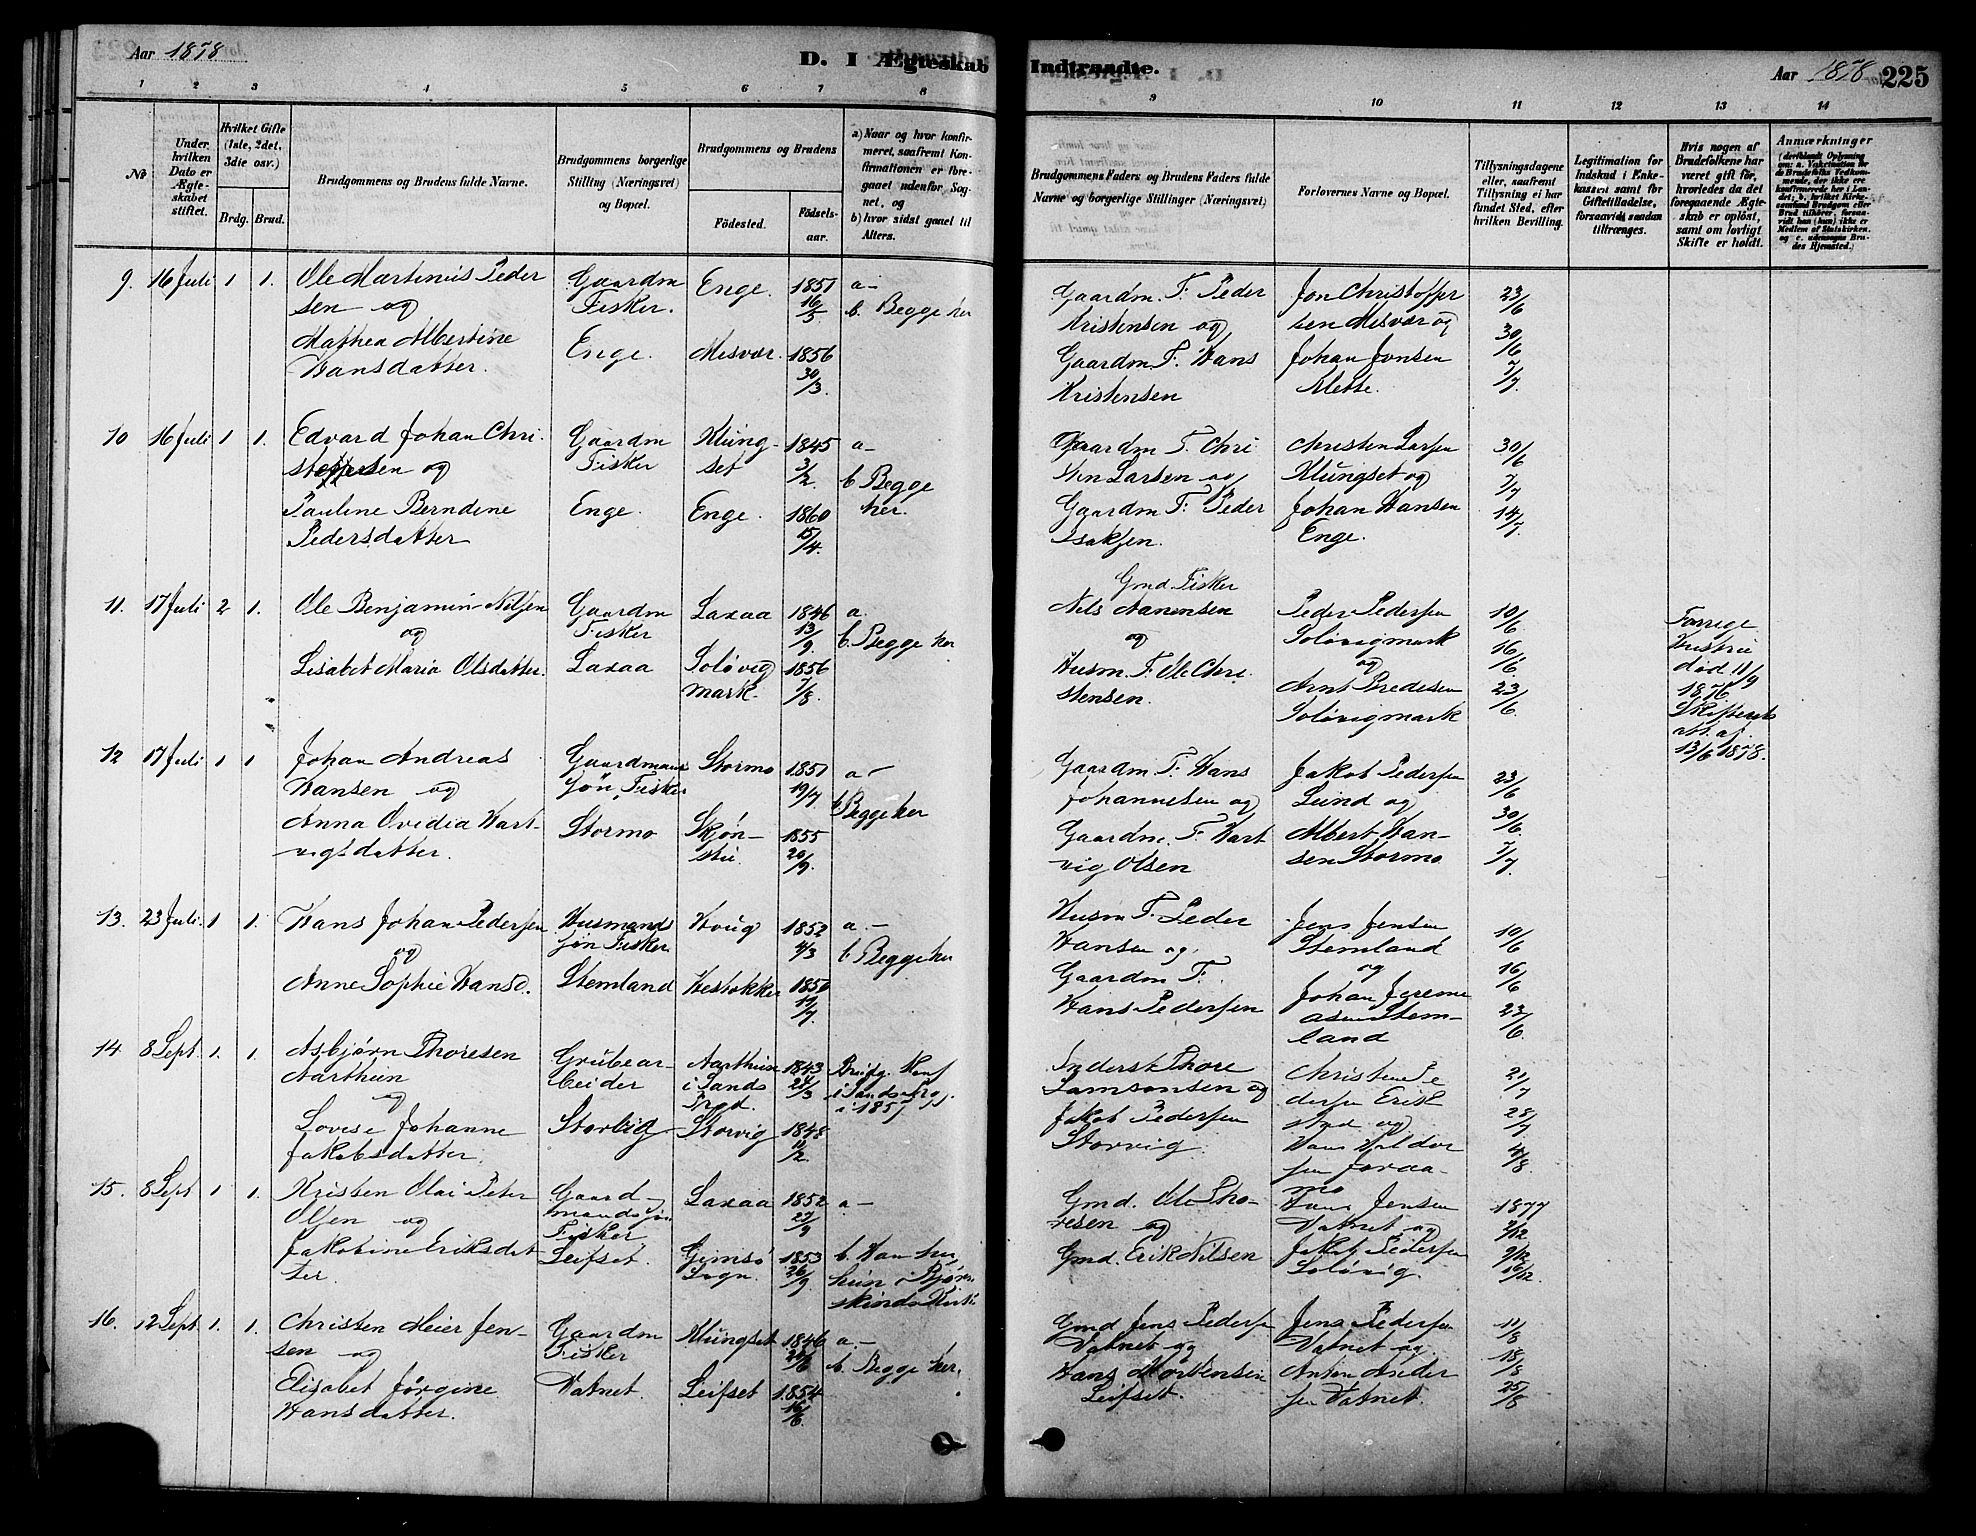 Aar 1878
D. I Ægteskab Indtraadte.
Aar 1878 225
1 2 3 4 5 6 7 8 9 10 11 12 13 14
No
Under hvilken Dato er Ægteskabet stiftet.
Hvilket Gifte (1ste, 2det, 3die osv.)
Brdg. Brud.
Brudgommens og Brudens fulde Navne.
Brudgommens borgerlige Stilling (Næringsvei) og Bopæl.
Brudgommens og Brudens
Fødested.
Fødselsaar.
a) Naar og hvor konfirmeret, saafremt Konfirmationen er foregaaet udenfor Sognet, og
b) hvor sidst gaaet til Alters.
Brudgommens Faders og Brudens Faders fulde Navne og borgerlige Stillinger (Næringsvei)
Forlovernes Navne og Bopæl.
Tillysningsdagene eller, saafremt Tillysning ei har fundet Sted, efter hvilken Bevilling.
Legitimation for Indskud i Enkekassen samt for Giftetilladelse, forsaavidt saadan tiltrænges.
Hvis nogen af Brudefolkene har været gift før, hvorledes da det foregaaende Ægteskab er opløst, samt om lovligt Skifte er holdt.
Anmærkninger
9. 16 Juli 1 1.
Ole Martinus Peder
sen og
Mathea Albertine
Hansdatter.
Gaardm
Fisker.
Enge.
Enge.
Misvær.
1851
16/5
1856
30/3
a -
b. Begge her
Gaardm. F. Peder
Kristensen og
Gaardm F. Hans
Kristensen
Jon Christoffer
sen Misvær og
Johan Jonsen
Mette.
23/6
30/6
7/7
10 16 Juli 1 1.
Edvard Johan Chri
sten og
Pauline Berndine
Pedersdatter
Gaardm
Fisker
Enge.
Klung-
set
Enge.
1845
3/2
1860
15/4
a -
b Begge
her.
Gaardm F. Chri
sten Larsen og
Gaardm F. Peder
Isaksen.
Christen Larsen
Klungset og
Johan Hansen
Enge.
30/6
7/7
14/7
11. 17 Juli 2 1.
Ole Benjamin Nilsen
og
Lisabet Maria Olsdatter.
Gaardm
Fisker
Laxaa
Laxaa
Soløvig
mark.
1846
13/9
1856
7/8
a.
b. Begge her
Gmd Fisker
Nels
og
Husm. F. Ole Chri
stensen.
Peder Pedersen
Soløvigmark
og
Arnt Predesen
Soløvigmark
10/6
16/6
23/6
Forrige
Hustru
død 11/9
1876
att. af
13/6 1878.
12 17 Juli 1 1
Johan Andreas
Hansen og
Anna Ovidia Hart-
vigsdatter.
Gaardmans
søn, Fisker
Stormo
Stormo
Skjøn-
stu.
1851
19/7
1855
20/9
a -
b Begge her
Gaardm F. Hans
Johannesen og
Gaardm. F. Hart
vig Olsen
Jakob Pedersen
Lund og
Albert Han-
sen Stormo
23/6
30/6
7/7
13. 23 Juli 1 1.
Hans Johan Pedersen
og
Anne Sophie Hansd.
Husmands
søn Fisker
Stemland
Houg
1852
4/3
1850
a. -
b Begge her
Husm F. Peder
Hansen og
Gaardm F.
Hans Pedersen
Jens Jensen
Stemland
og
Johan Jeremi
asen Stem-
land
10/6
16/6
23/6
14. 8 Sept. 1. 1.
Asbjørn Thoresen
Aarthun
og
Lovise Johanne
Jakobsdatter.
Grubear
beider
Storvig
Aarthun
i Sands
Præd.
Storvig
1843
24/3
1848
11/2
Brudg. Konf
i Sands Præ
i 1857
Inderst Thore
Samsonsen og
Jakob Pedersen
Storvig
Christen Pe
dersen Erik
stad og
Hans Haldor
sen Joraa
mo
21/7
28/7
4/8
15. 8 Sept 1 1.
Kristen Olai Peter
Olsen og
Jakobine Eriksdat
ter.
Gaard-
mandssøn
Fisker
Leifset.
Laxaa
Gimsø
Sogn.
1852
27/9
1853
26/9
a -
b. Han her
hun i Bjørn
skinds Kirke
Gmd. Ole Tho-
resen og
Gmd. Erik Nilsen
Hans Jensen
Vatnet og
Jakob Pedersen
Soløvig.
1877
2/12
9/12
16/12
16. 12 Sept. 1. 1.
Christen Meier Jen-
sen og
Elisabet Jørgine
Hansdatter.
Gaardm
Fisker
Vatnet.
Klungset
Leifset
1846
1854
16/6
a. -
b. Begge her.
Gmd Jens Pedersen
Vatnet og
Hans Mortensen
Leifset.
Jens Pedersen
Vatnet og
Anton Ander
sen Vatnet.
11/8
18/8
25/8